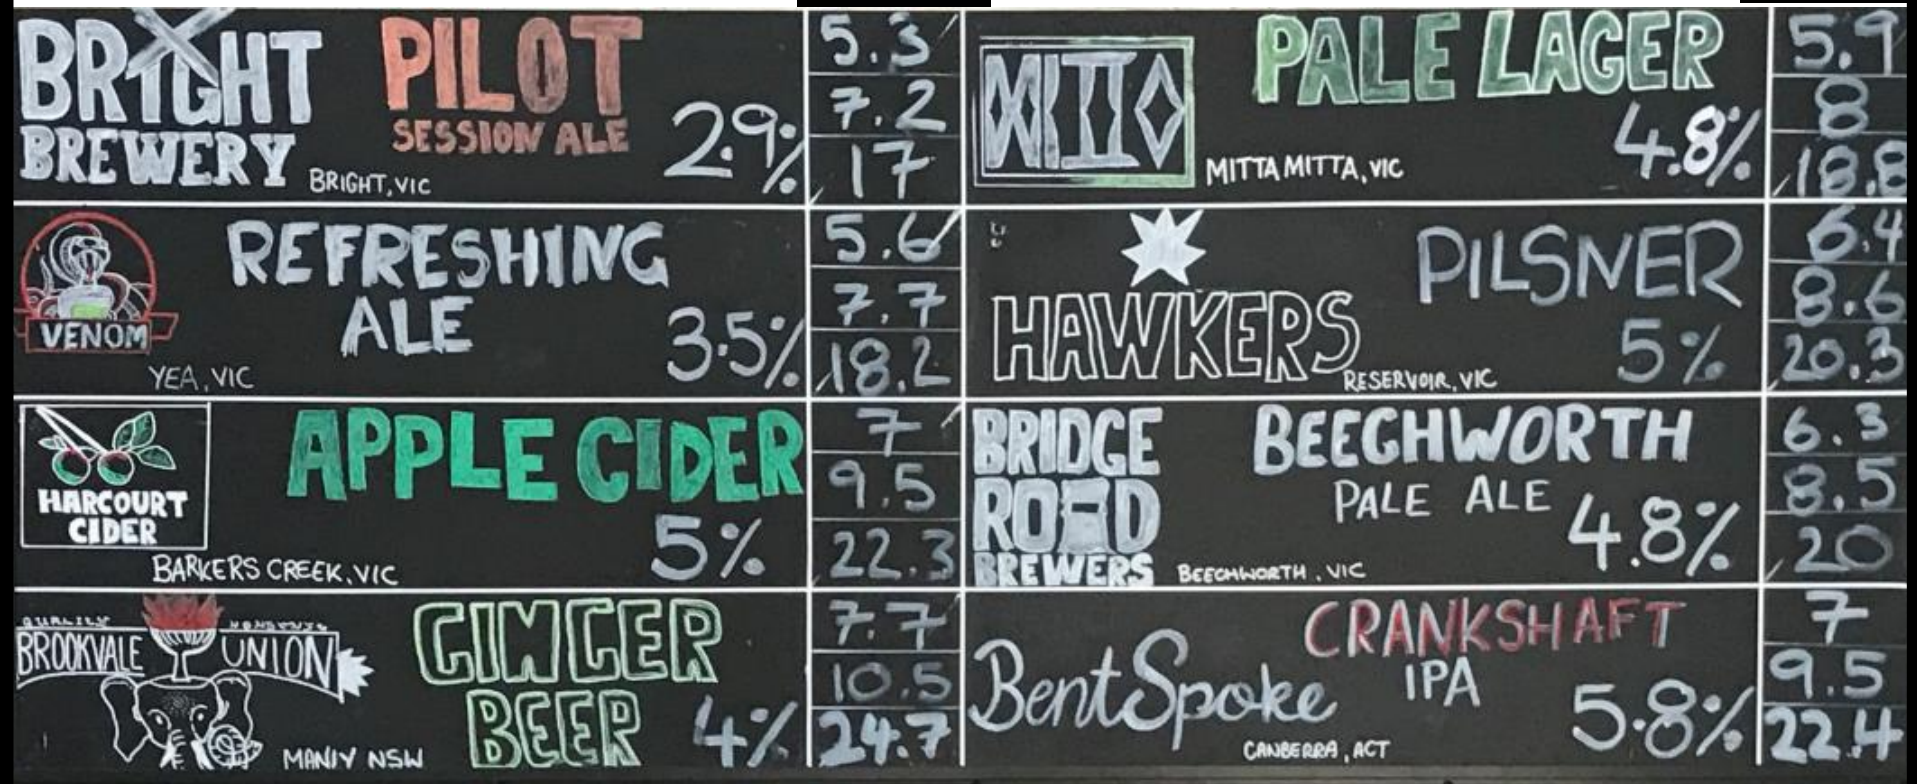 BRIGHT
BREWERY
BRIGHT, VIC
PILOT
SESSION ALE
2.9%
5.3
7.2
17
VENOM
YEA, VIC
REFRESHING
ALE
3.5%
5.6
7.7
18.2
HARCOURT
CIDER
BARKERS CREEK, VIC
APPLE CIDER
5%
7
9.5
22.3
BROOKVALE UNION
MANLY NSW
GINGER
BEER
4%
7.7
10.5
24.7
MITTA MITTA, VIC
PALE LAGER
4.8%
5.9
8
18.8
HAWKERS
RESERVOIR, VIC
PILSNER
5%
6.4
8.6
20.3
BRIDGE
ROAD
BREWERS
BEECHWORTH, VIC
BEECHWORTH
PALE ALE
4.8%
6.3
8.5
20
BentSpoke
CANBERRA, ACT
CRANKSHAFT
IPA
5.8%
7
9.5
22.4